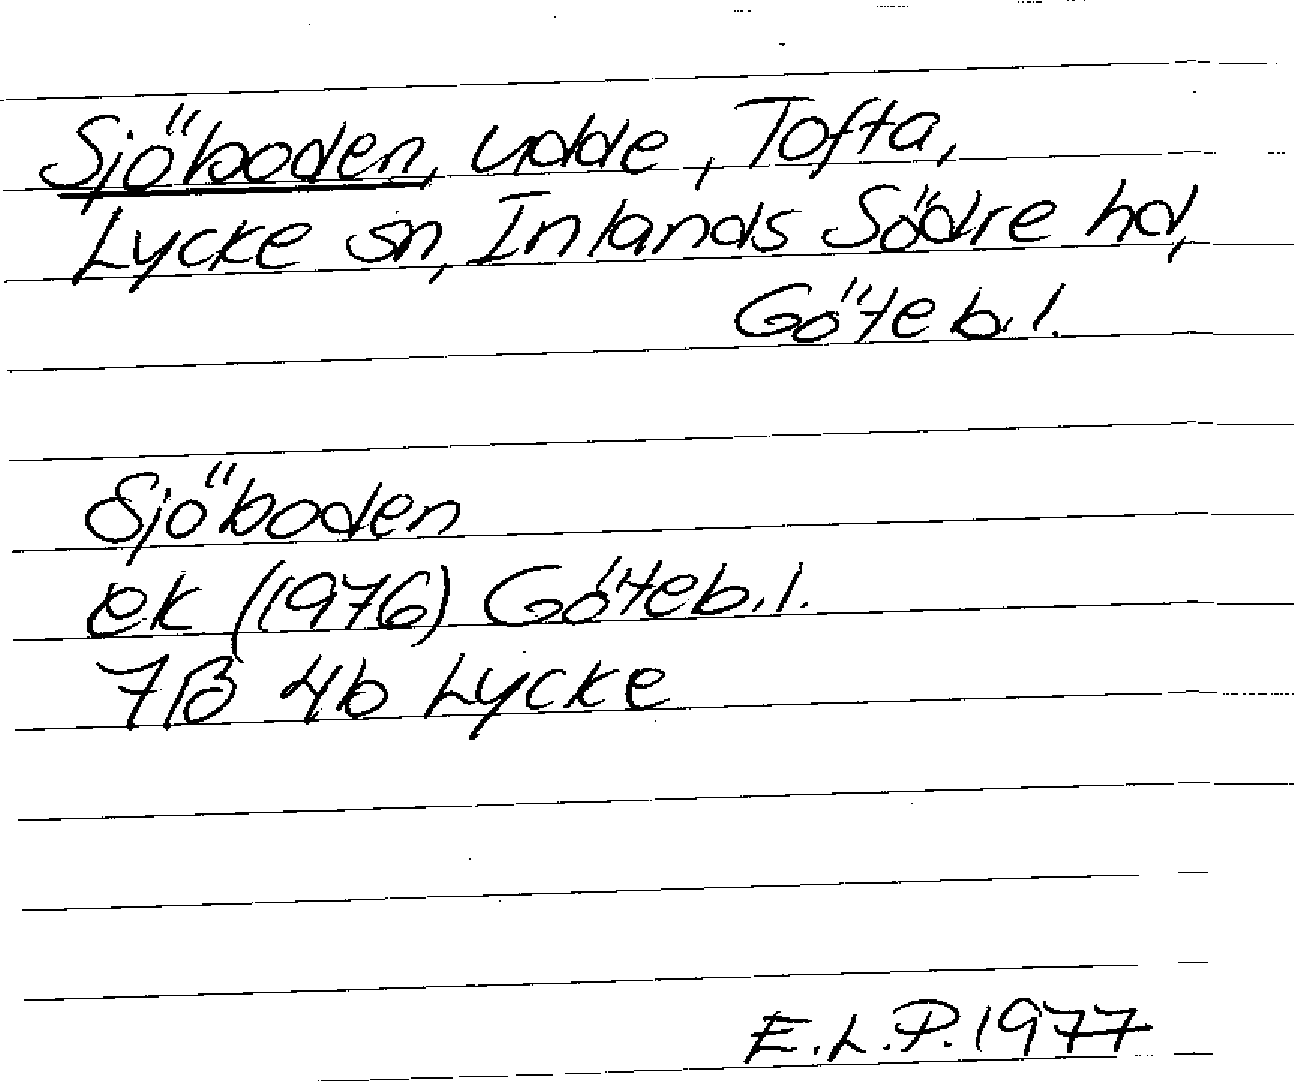 Sjöboden, udde, Tofta,
Lycke sn, Inlands Södre hd,
Göteb. l.
Sjöboden
ek (1976) Göteb. l.
7B 4b Lycke
E.L.P. 1977